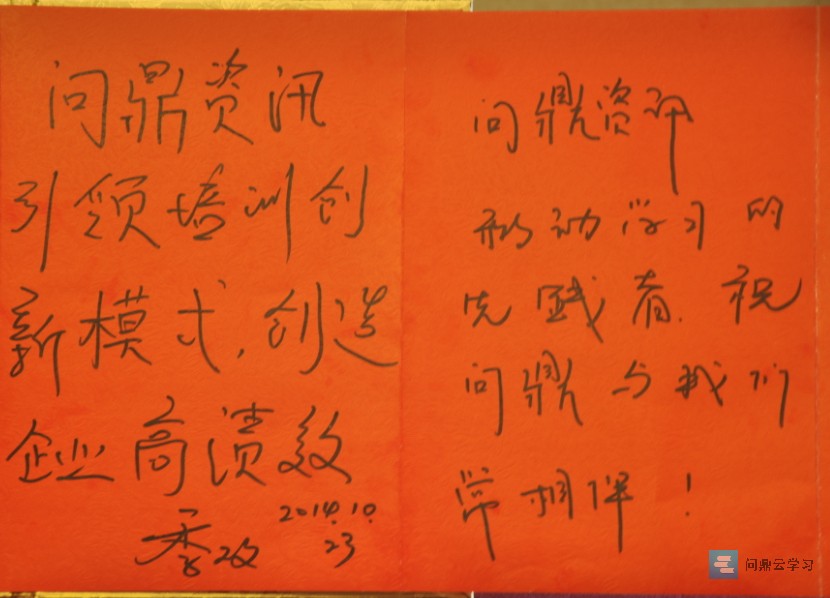 问鼎资讯
引领培训创
新模式,创造
企业高绩效
2014.10.
23
问鼎资讯
移动学习的
先践者.祝
问鼎与我们
常相伴!
问鼎云学习